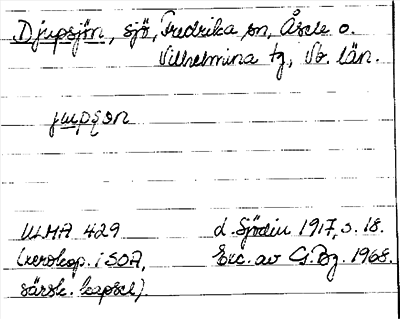 Djupsjön, sjö, Fredrika sn, Åsele o.
Vilhelmina tg, Vb. län.
jupsɔn
ULMA 429 d. Sjödin 1917, s. 18.
(xerokop. i SOA, Exc. av G.Bg. 1968.
särsk. kapsel).